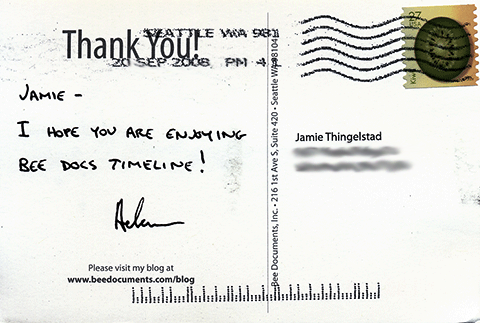 SEATTLE WA 981
Thank You!
20 SEP 2008 PM 4
JAMIE -
I HOPE YOU ARE ENJOYING
BEE DOCS TIMELINE!
Please visit my blog at
www.beedocuments.com/blog
Bee Documents, Inc. • 216 1st Ave S, Suite 420 • Seattle WA 98104
27
Jamie Thingelstad